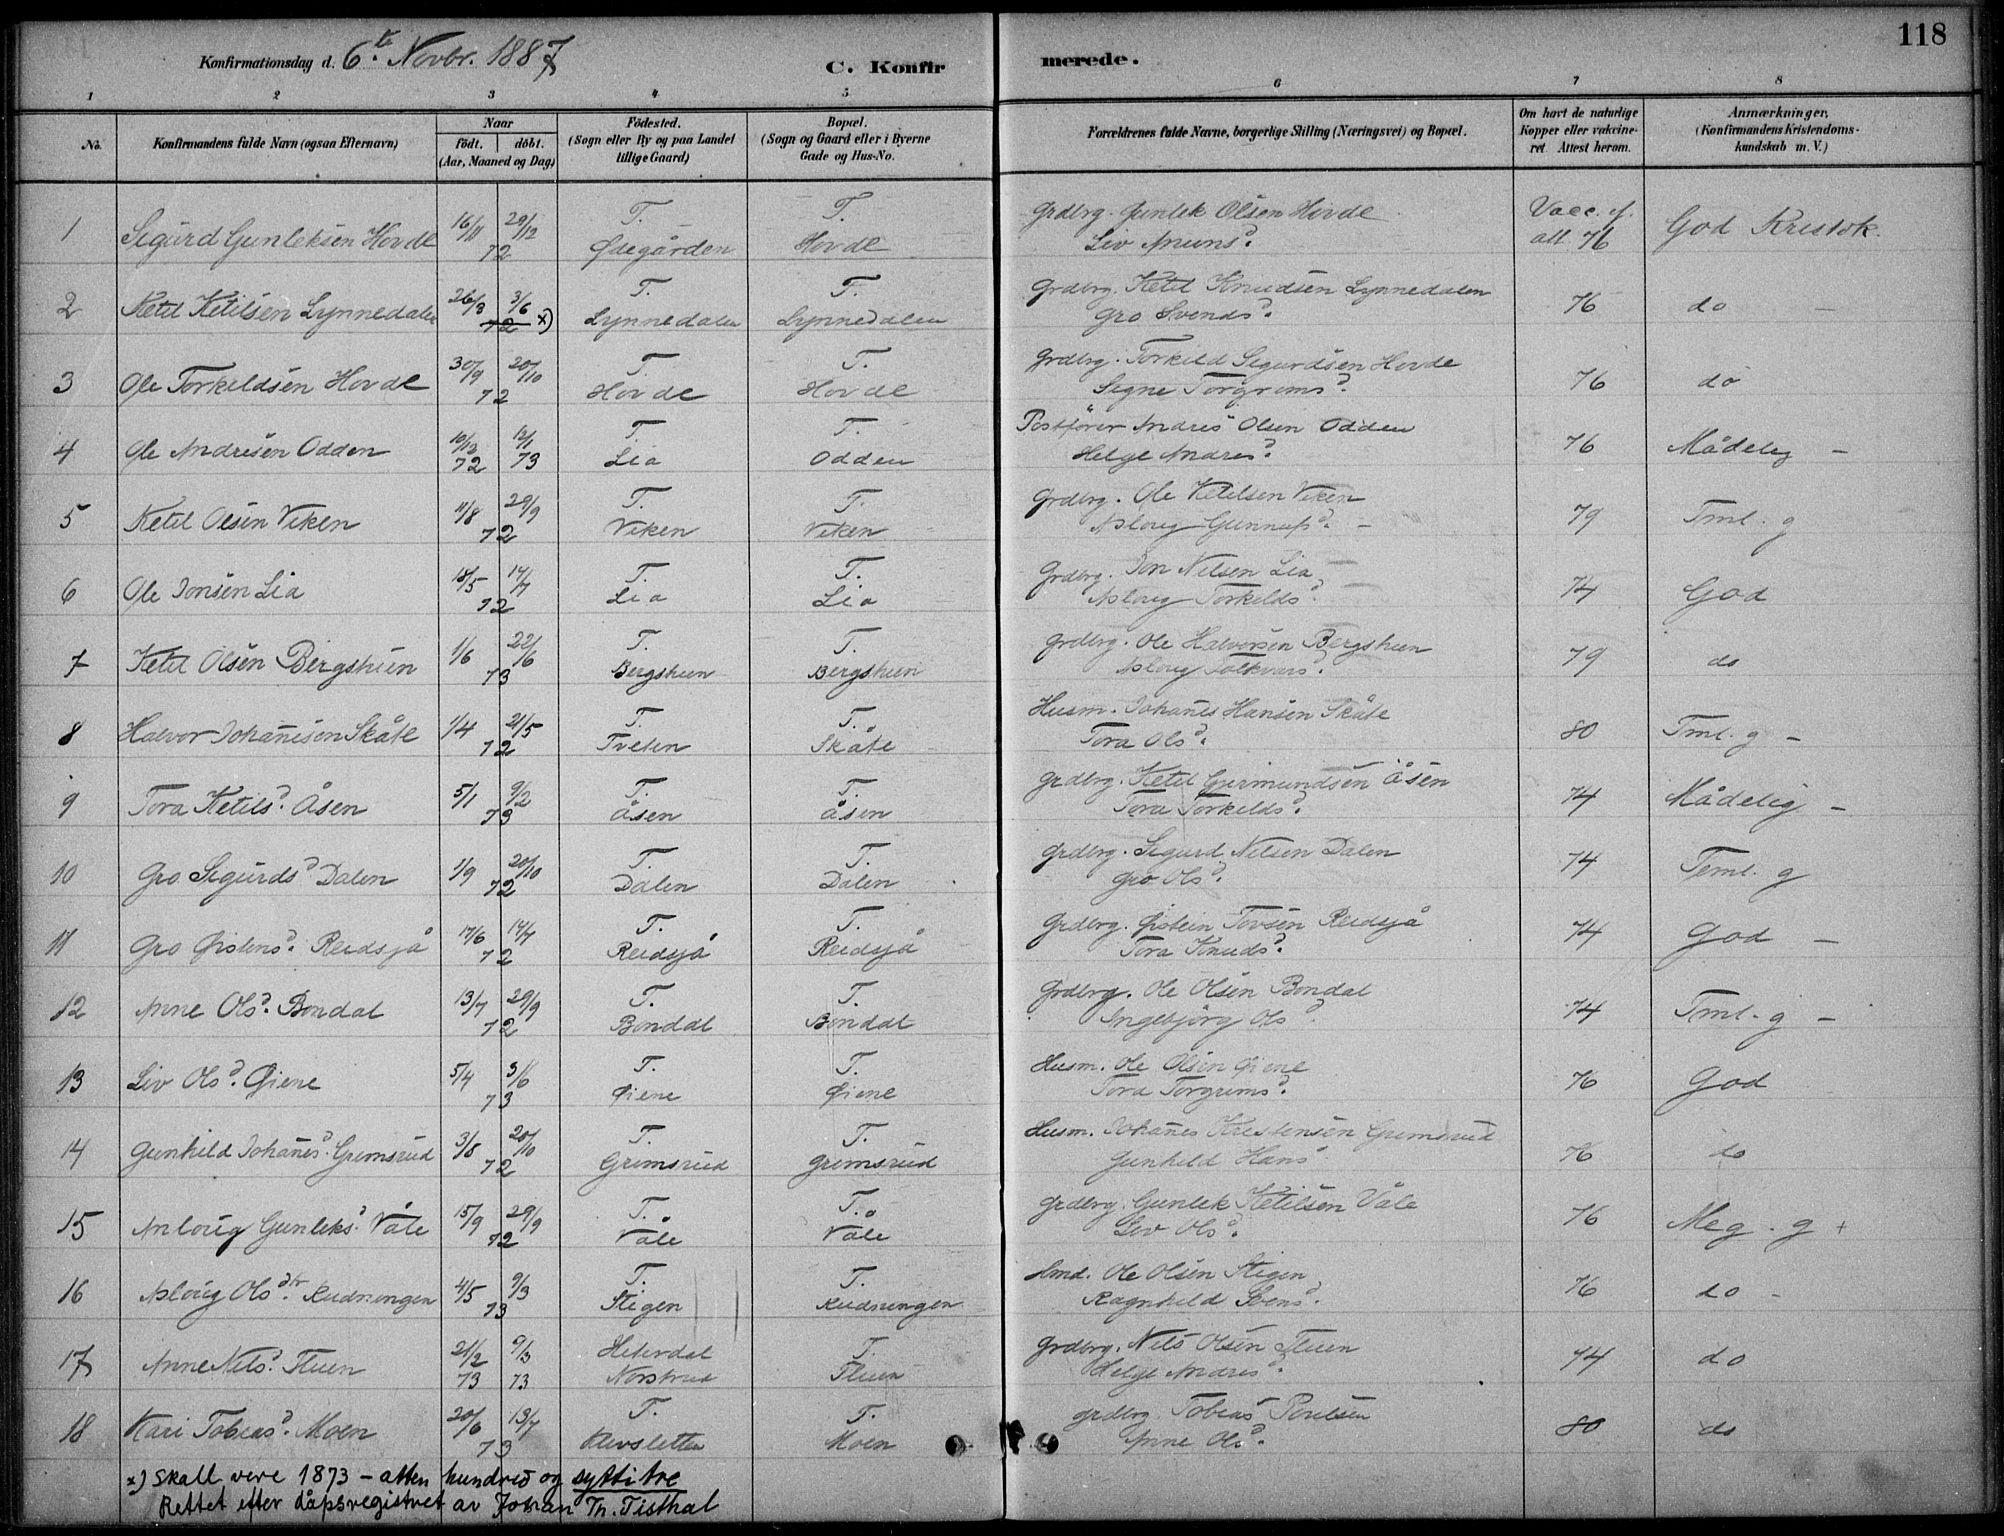 118
Konfirmationsdag d. 6te Novbr. 1887
C. Konfirmerede.
1 2 3 4 5 6 7 8
No. Konfirmandens fulde Navn (ogsaa Efternavn) Naar født. døbt. (Aar, Maaned og Dag) Fødested. (Sogn eller By og paa Landet tillige Gaard) Bopæl. (Sogn og Gaard eller i Byerne Gade og Hus-No. Forældrenes fulde Navne, borgerlige Stilling (Næringsvei) og Bopæl. Om havt de naturlige Kopper eller vakcineret. Attest herom. Anmærkninger. (Konfirmandens Kristendomskundskab m. V.)
1 Sigurd Gunleksen Hovde 16/11 29/12 72 T. Ødegården T. Hovde Grdbrg. Gunlek Olsen Hovde Vacc. if. att. 76 God Kristdk.
Liv Anunsd.
2 Ketil Ketilsen Lynnedalen 26/3 3/6 72 x) T. Lynnedalen T. Lynnedalen Grdbrg. Ketil Knudsen Lynnedalen 76 do –
Gro Svendsd.
3 Ole Torkildsen Hovde 30/9 20/10 72 T. Hovde T. Hovde Grdbrg. Torkild Sigurdsen Hovde 76 do
Signe Torgrimsd.
4 Ole Andresen Odden 10/12 72 12/1 73 T. Lia T. Odden Postfører Andres Olsen Odden 76 Mådelig –
Helge Andresd.
5 Ketil Olsen Viken 11/8 29/9 72 T. Viken T. Viken Grdbrg. Ole Ketilsen Viken 79 Tml. g
Asloug Gunnufsd. –
6 Ole Jonsen Lia 18/5 14/7 72 T. Lia T. Lia Grdbrg. Jon Nilsen Lia 74 God
Asloug Torkildsd.
7 Ketil Olsen Bergshien 1/6 22/6 73 T. Bergshien T. Bergshien Grdbrg. Ole Halvorsen Bergshien 79 do
Asloug Folkvarsd.
8 Halvor Johannesen Skåte 1/4 21/5 72 T. Tveten T. Skåte Husm. Johanes Hansen Skåte 80 Tml. g –
Tora Olsd.
9 Tora Ketilsd. Åsen 5/1 9/2 73 T. Åsen T. Åsen Grdbrg. Ketil Germundsen Åsen 74 Mådelig –
Tora Torkildsd.
10 Gro Sigurdsd Dalen 1/9 20/10 72 T. Dalen T. Dalen Grdbrg. Sigurd Nilsen Dalen 74 Teml. g
Gro Olsd.
11 Gro Øistensd. Reidsjå 17/6 14/7 72 T. Reidsjå T. Reidsjå Grdbrg. Øistein Tovsen Reidsjå 74 God –
Tora Knudsd.
12 Anne Olsd. Bondal 13/7 29/9 72 T. Bondal T. Bondal Grdbrg. Ole Olsen Bondal 74 Tml. g –
Ingebjörg Olsd.
13 Liv Olsd. Øiene 5/4 3/6 73 T. Øiene T. Øiene Husm. Ole Olsen Øiene 76 God
Tora Torgrimsd.
14 Gunhild Johanesd. Grimsrud 3/8 20/10 72 T. Grimsrud T. Grimsrud Husm. Johanes Kristensen Grimsrud 76 do
Gunhild Hansd.
15 Anloug Gunleksd. Våle 15/9 29/9 72 T. Våle T. Våle Grdbrg. Gunlek Ketilsen Våle 76 Meg. g +
Liv Olsd.
16 Asloug Olsdtr. Rudningen 4/5 9/3 73 T. Stigen T. Rudningen Imd. Ole Olsen Stigen 76 do –
Ragnhild Svensd.
17 Anne Nilsd. Fluen 21/2 73 9/3 73 Hiterdal Norstrud T. Fluen Grdbrg. Nils Olsen Fluen 74 do
Helge Andresd.
18 Kari Tobiasd. Moen 20/6 13/7 73 T. Klevsletten T. Moen Grdbrg. Tobias Poulsen 80 do
Anne Olsd.
x) Skall vere 1873 – atten hundred og sytti tre
Rettet efter dåpsregistret av Johan Th. Tisthal